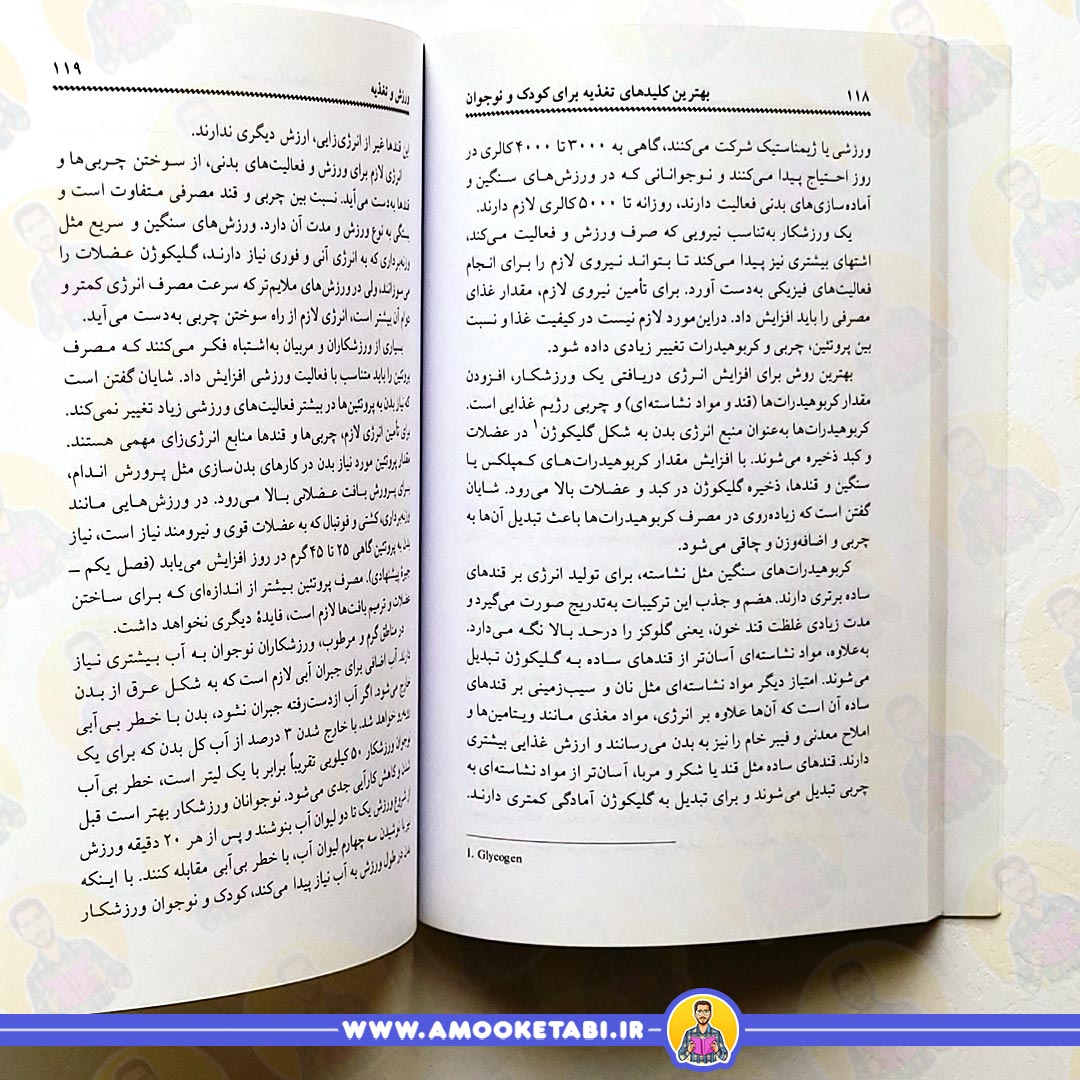 ۱۱۸
بهترین کلیدهای تغذیه برای کودک و نوجوان
ورزشی یا ژیمناستیک شرکت می‌کنند، گاهی به ۳۰۰۰ تا ۴۰۰۰ کالری در
روز احتیاج پیدا می‌کنند و نوجوانانی که در ورزش‌های سنگین و
آماده‌سازی‌های بدنی فعالیت دارند، روزانه تا ۵۰۰۰ کالری لازم دارند.
یک ورزشکار به‌تناسب نیرویی که صرف ورزش و فعالیت می‌کند،
اشتهای بیشتری نیز پیدا می‌کند تا بتواند نیروی لازم را برای انجام
فعالیت‌های فیزیکی به‌دست آورد. برای تأمین نیروی لازم، مقدار غذای
مصرفی را باید افزایش داد. دراین‌مورد لازم نیست در کیفیت غذا و نسبت
بین پروتئین، چربی و کربوهیدرات تغییر زیادی داده شود.
بهترین روش برای افزایش انرژی دریافتی یک ورزشکار، افزودن
مقدار کربوهیدرات‌ها (قند و مواد نشاسته‌ای) و چربی رژیم غذایی است.
کربوهیدرات‌ها به‌عنوان منبع انرژی بدن به شکل گلیکوژن۱ در عضلات
و کبد ذخیره می‌شوند. با افزایش مقدار کربوهیدرات‌های کمپلکس یا
سنگین و قندها، ذخیره گلیکوژن در کبد و عضلات بالا می‌رود. شایان
گفتن است که زیاده‌روی در مصرف کربوهیدرات‌ها باعث تبدیل آن‌ها به
چربی و اضافه‌وزن و چاقی می‌شود.
کربوهیدرات‌های سنگین مثل نشاسته، برای تولید انرژی بر قندهای
ساده برتری دارند. هضم و جذب این ترکیبات به‌تدریج صورت می‌گیرد و
مدت زیادی غلظت قند خون، یعنی گلوکز را درحد بالا نگه می‌دارد.
به‌علاوه، مواد نشاسته‌ای آسان‌تر از قندهای ساده به گلیکوژن تبدیل
می‌شوند. امتیاز دیگر مواد نشاسته‌ای مثل نان و سیب‌زمینی بر قندهای
ساده آن است که آن‌ها علاوه بر انرژی، مواد مغذی مانند ویتامین‌ها و
املاح معدنی و فیبر خام را نیز به بدن می‌رسانند و ارزش غذایی بیشتری
دارند. قندهای ساده مثل قند یا شکر و مربا، آسان‌تر از مواد نشاسته‌ای به
چربی تبدیل می‌شوند و برای تبدیل به گلیکوژن آمادگی کمتری دارند.
1. Glycogen
ورزش و تغذیه
۱۱۹
این قندها غیر از انرژی‌زایی، ارزش دیگری ندارند.
انرژی لازم برای ورزش و فعالیت‌های بدنی، از سوختن چربی‌ها و
قندها به‌دست می‌آید. نسبت بین چربی و قند مصرفی متفاوت است و
بستگی به نوع ورزش و مدت آن دارد. ورزش‌های سنگین و سریع مثل
وزنه‌برداری که به انرژی آنی و فوری نیاز دارند، گلیکوژن عضلات را
می‌سوزانند، ولی در ورزش‌های ملایم‌تر که سرعت مصرف انرژی کمتر و
دوام آن بیشتر است، انرژی لازم از راه سوختن چربی به‌دست می‌آید.
بسیاری از ورزشکاران و مربیان به‌اشتباه فکر می‌کنند که مصرف
پروتئین را باید متناسب با فعالیت ورزشی افزایش داد. شایان گفتن است
که نیاز بدن به پروتئین‌ها در بیشتر فعالیت‌های ورزشی زیاد تغییر نمی‌کند.
برای تأمین انرژی لازم، چربی‌ها و قندها منابع انرژی‌زای مهمی هستند.
مقدار پروتئین مورد نیاز بدن در کارهای بدن‌سازی مثل پرورش اندام،
برای پرورش بافت عضلانی بالا می‌رود. در ورزش‌هایی مانند
وزنه‌برداری، کشتی و فوتبال که به عضلات قوی و نیرومند نیاز است، نیاز
بدن به پروتئین گاهی ۲۵ تا ۴۵ گرم در روز افزایش می‌یابد (فصل یکم –
جیرهٔ پیشنهادی). مصرف پروتئین بیشتر از اندازه‌ای که برای ساختن
عضلات و ترمیم بافت‌ها لازم است، فایدهٔ دیگری نخواهد داشت.
در مناطق گرم و مرطوب، ورزشکاران نوجوان به آب بیشتری نیاز
دارند. آب اضافی برای جبران آبی لازم است که به شکل عرق از بدن
خارج می‌شود. اگر آب ازدست‌رفته جبران نشود، بدن با خطر بی‌آبی
روبه‌رو خواهد شد. با خارج شدن ۳ درصد از آب کل بدن که برای یک
نوجوان ورزشکار ۵۰ کیلویی تقریباً برابر با یک لیتر است، خطر بی‌آب
شدن و کاهش کارآیی جدی می‌شود. نوجوانان ورزشکار بهتر است قبل
از شروع ورزش یک تا دو لیوان آب بنوشند و پس از هر ۲۰ دقیقه ورزش
نوشیدن سه چهارم لیوان آب، با خطر بی‌آبی مقابله کنند. با اینکه
بدن در طول ورزش به آب نیاز پیدا می‌کند، کودک و نوجوان ورزشکار
WWW.AMOOKETABI.IR